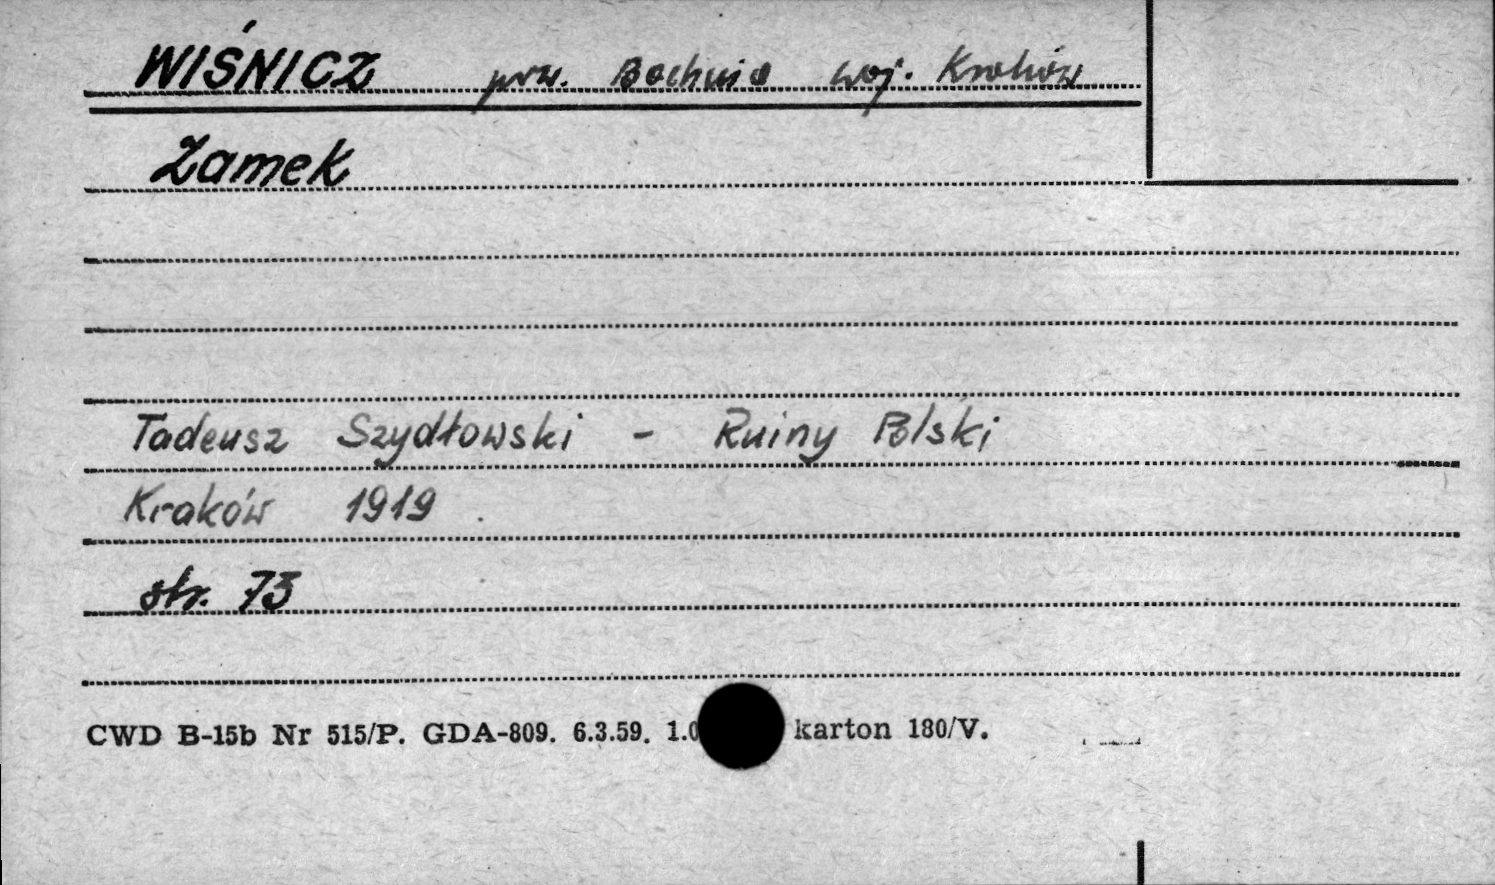 WIŚNICZ pow. Bochnia woj. Kraków
Zamek
Tadeusz Szydłowski - Ruiny Polski
Kraków 1919.
str. 73
CWD B-15b Nr 515/P. GDA-809. 6.3.59. 1.0 karton 180/V.